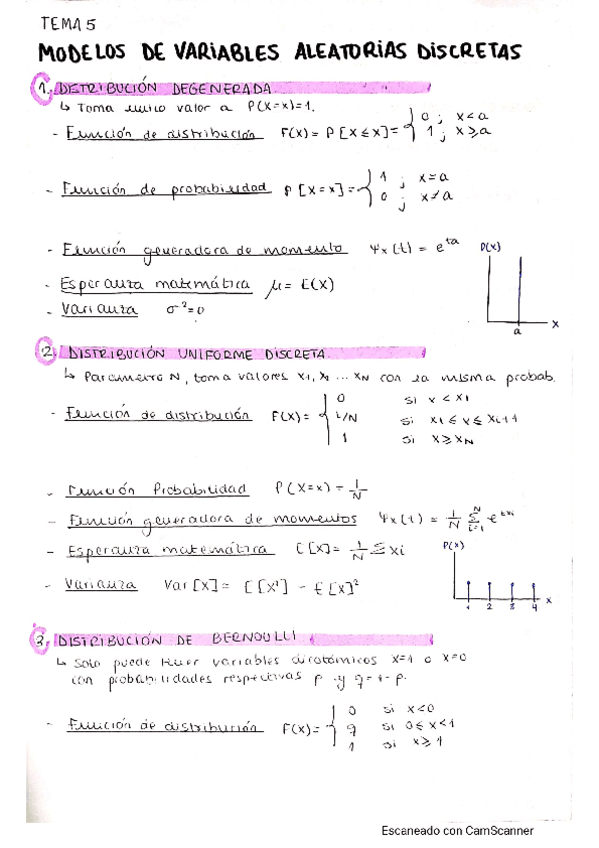 TEMA 5
MODELOS DE VARIABLES ALEATORIAS DISCRETAS
1. DISTRIBUCIÓN DEGENERADA
↳ Toma único valor a P(X=x)=1.
- Función de distribución F(x) = P[X≤x] = { 0 ; x<a
1 ; x≥a
- Función de probabilidad P[X=x] = { 1 ; x=a
0 ; x≠a
- Función generadora de momento Ψx(t) = e^ta
P(x)
a
x
- Esperanza matemática μ = E(X)
- Varianza σ²=0
2. DISTRIBUCIÓN UNIFORME DISCRETA
↳ Parámetro N, toma valores x1, x1 ... xN con la misma probab.
- Función de distribución F(x) = { 0 si x < x1
i/N si xi ≤ x ≤ xi+1
1 si x ≥ xN
- Función Probabilidad P(X=x) = 1/N
- Función generadora de momentos Ψx(t) = 1/N Σ i=1 N e^txi
- Esperanza matemática E[x] = 1/N Σ xi
P(x)
1 2 3 4 x
- Varianza Var[x] = E[x²] - E[x]²
3. DISTRIBUCIÓN DE BERNOULLI
↳ Solo puede tener variables dicotómicos x=1 o x=0
con probabilidades respectivas p y q=1-p.
- Función de distribución F(x) = { 0 si x<0
q si 0≤x<1
1 si x≥1
Escaneado con CamScanner